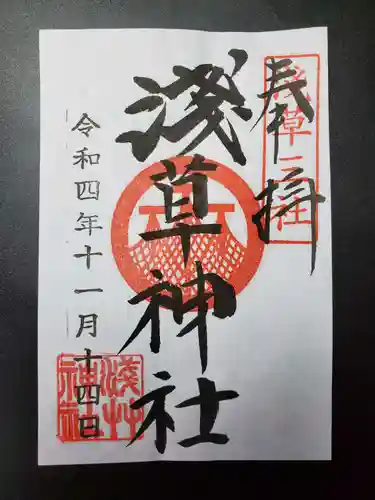 奉拝
淺草三社
淺草神社
令和四年十一月十四日
淺艸
神社